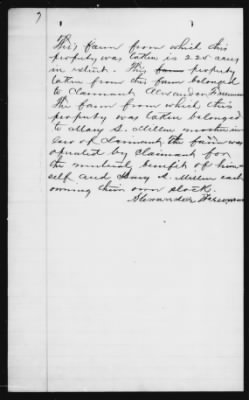 7
This farm from which this
property was taken is 225 acres
in extent. This farm property
taken from this farm belonged
to Claimant Alexander
The farm from which this
property was taken belonged
to Mary S. Miller mother in
law of Claimant the farm was
operated by Claimant for
the mutual benefit of him-
self and Mary S. Miller each
owning their own stock.
Alexander